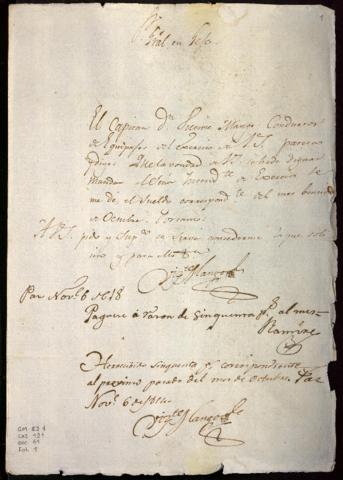 1
Gral en Gefe
El Capitan Dn Vicente Manco Conductor
de Equipages del Exercito de V.E. parece y
dice: Que la vondad de V.E. se ha de dignar
mandar Al Señor Intendte de Exercito se
me de el Sueldo correspondte del mes
de Octubre
A V.E. pido y Supco se sirva concederme lo que soli
sito y para ello &a
Vizte Manco
Paz Nove 6 de 18
Paguese à razon de Sinquenta ps al mes
Ramirez
He recivido Sinquenta ps correspondiente
al proximo pasado del mes de Octubre. Paz
Nove 6 de 1814
Vizte Manco
GM-
CAJ 191
DOC 61
Fol. 1